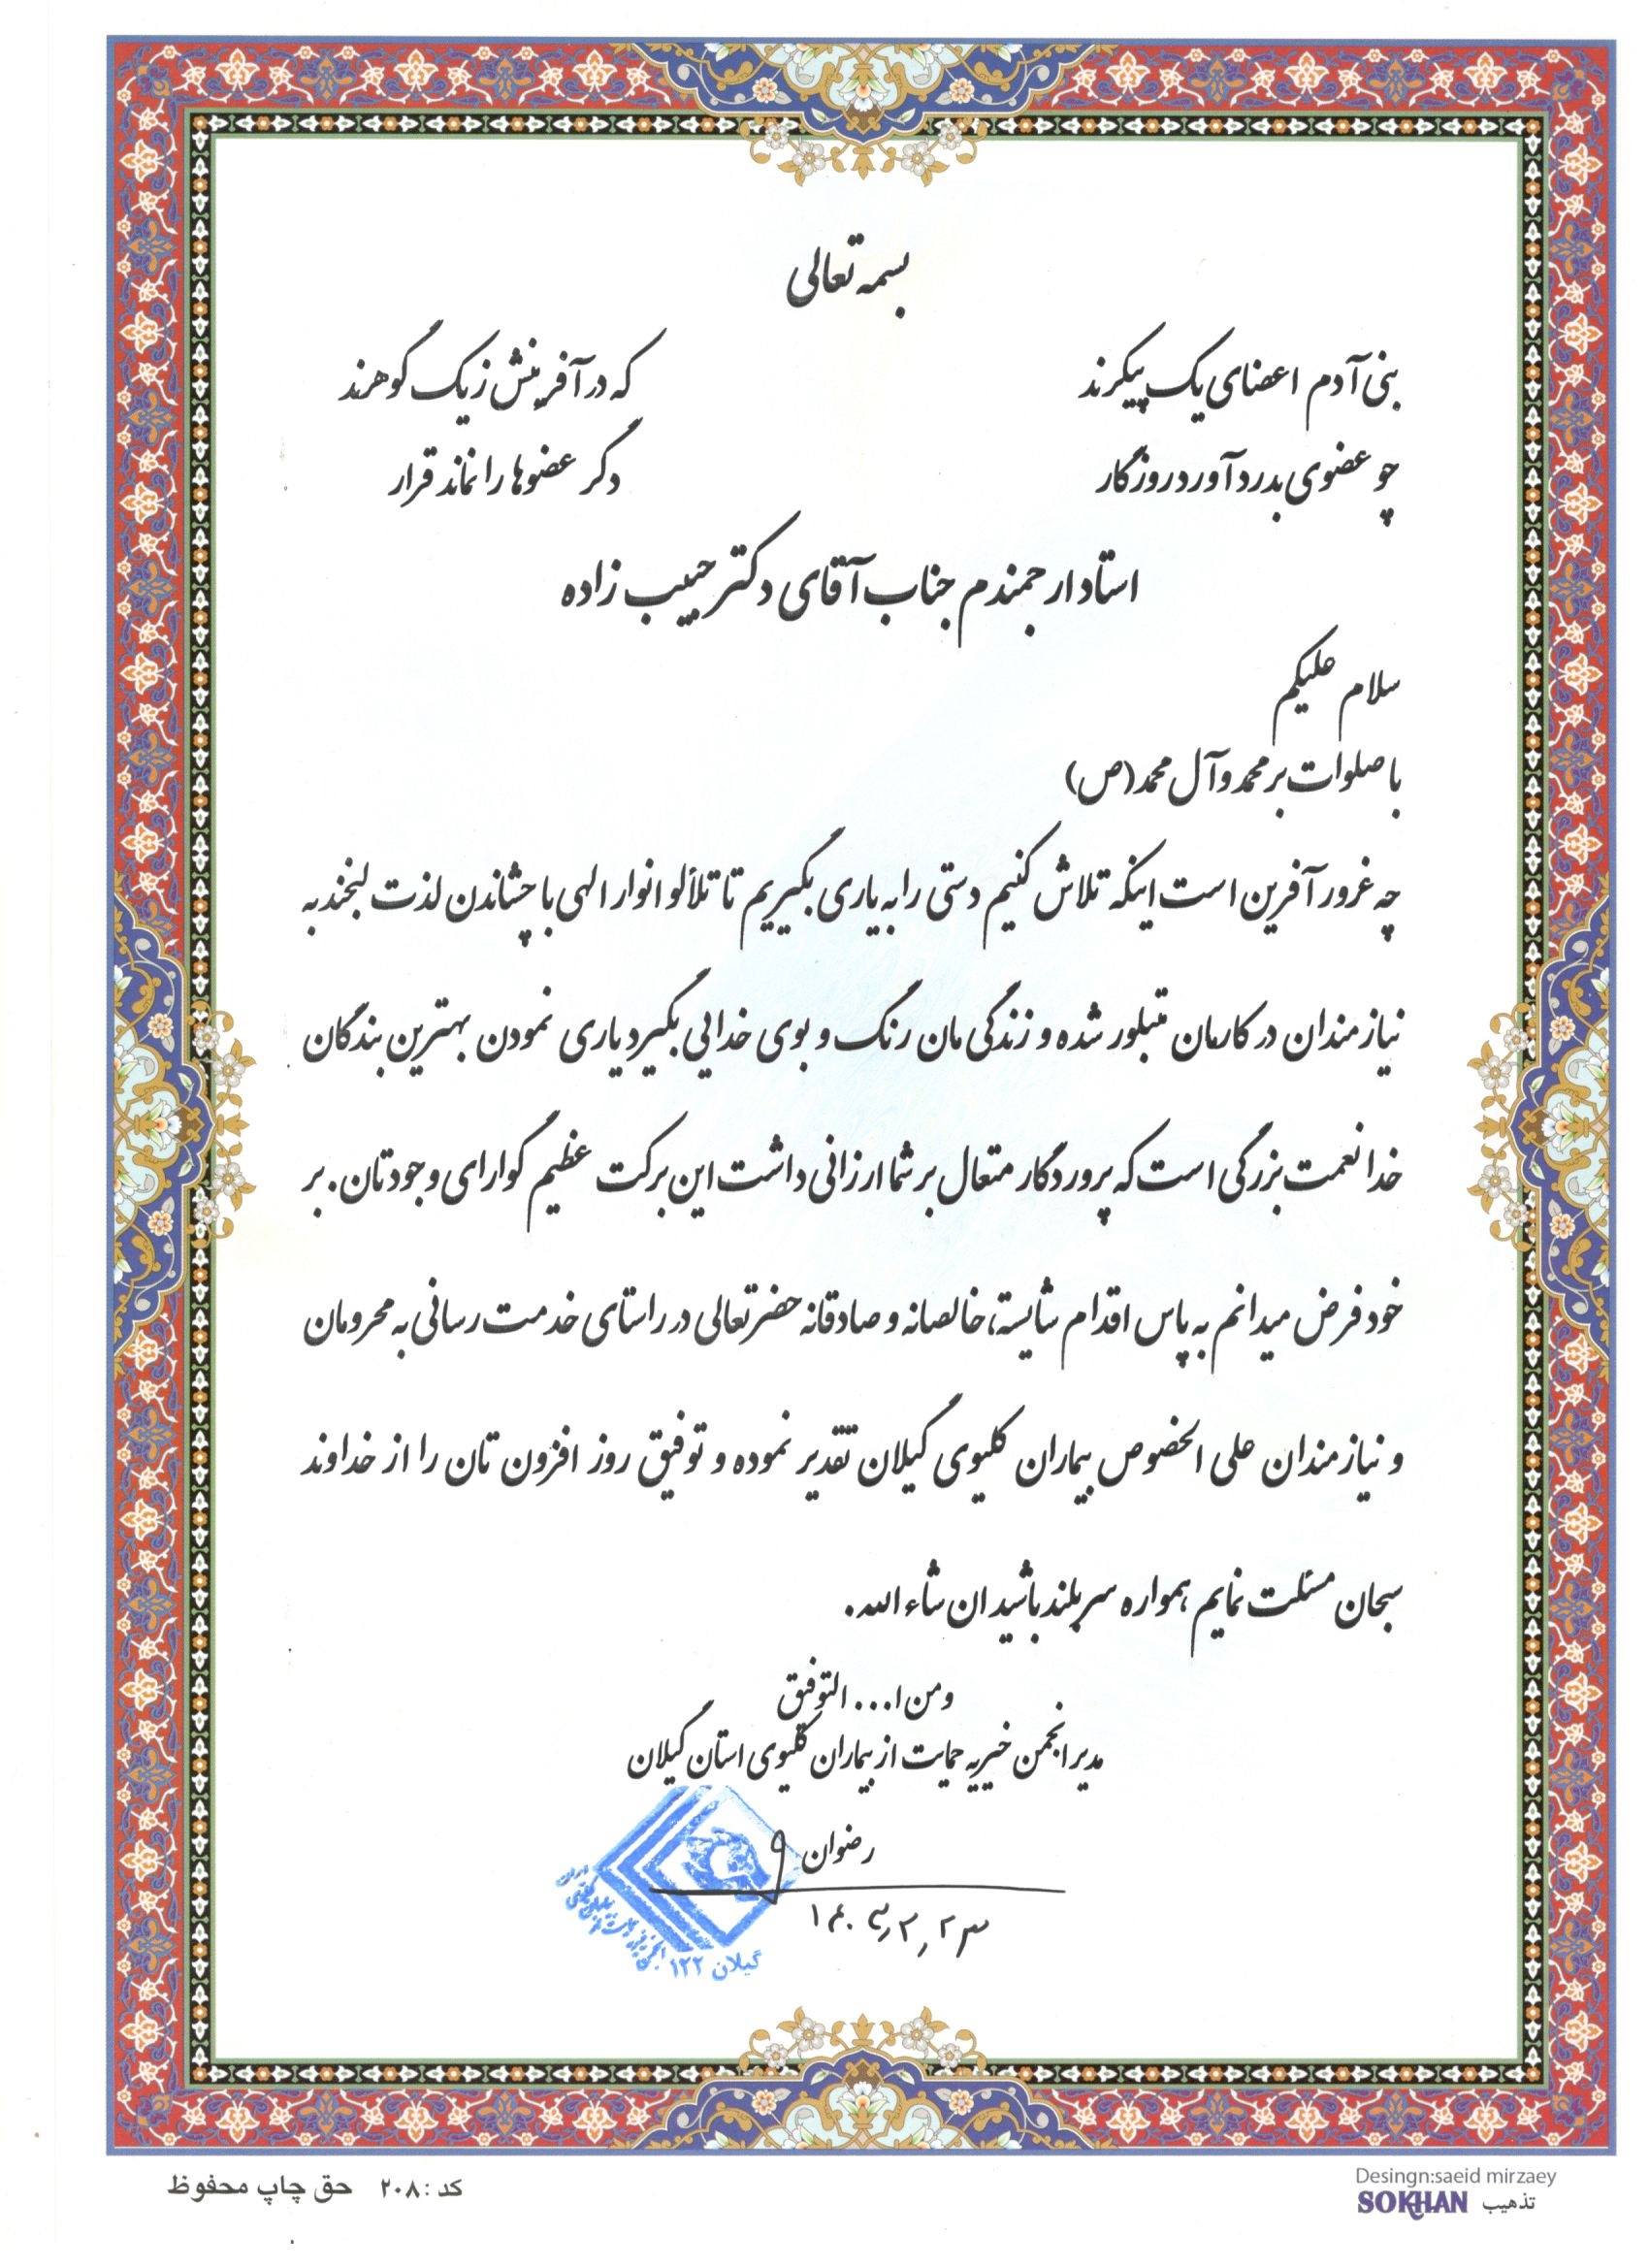 بسمه تعالی
بنی آدم اعضای یک پیکرند که در آفرینش ز یک گوهرند
چو عضوی بدرد آورد روزگار دگر عضوها را نماند قرار
استاد ارجمندم جناب آقای دکتر حبیب زاده
سلام علیکم
با صلوات بر محمد و آل محمد (ص)
چه غرور آفرین است اینکه تلاش کنیم دستی را به یاری بگیریم تا تلألو انوار الهی با چشاندن لذت لبخند به
نیازمندان در کارمان متبلور شده و زندگی مان رنگ و بوی خدایی بگیرد یاری نمودن بهترین بندگان
خدا نعمت بزرگی است که پروردگار متعال بر شما ارزانی داشت این برکت عظیم گوارای وجودتان. بر
خود فرض میدانم به پاس اقدام شایسته، خالصانه و صادقانه حضرتعالی در راستای خدمت رسانی به محرومان
و نیازمندان علی الخصوص بیماران کلیوی گیلان تقدیر نموده و توفیق روز افزون تان را از خداوند
سبحان مسئلت نمایم همواره سربلند باشید ان شاء الله.
ومن ا... التوفیق
مدیر انجمن خیریه حمایت از بیماران کلیوی استان گیلان
رضوان
گیلان ۱۲۲
کد : ۲۰۸ حق چاپ محفوظ
Desingn:saeid mirzaey
SOKHAN تذهیب